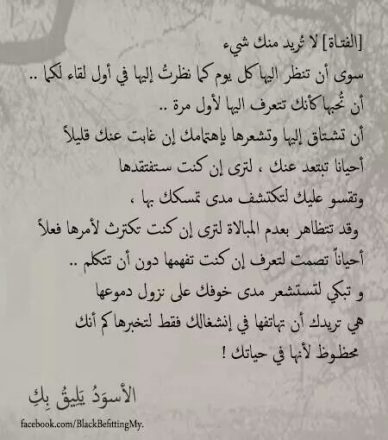 [الفتاة] لا تُريد منك شيء
سوى أن تنظر اليها كل يوم كما نظرتُ إليها في أول لقاء لكما ..
أن تُحبها كأنك تتعرف اليها لأول مرة ..
أن تشتاق إليها وتشعرها بإهتمامك إن غابت عنك قليلاً
أحيانا تبتعد عنك ، لترى إن كنت ستفتقدها
وتقسو عليك لتكتشف مدى تمسكك بها ،
وقد تتظاهر بعدم المبالاة لترى إن كنت تكترث لأمرها فعلاً
أحياناً تصمت لتعرف إن كنت تفهمها دون أن تتكلم ..
و تبكي لتستشعر مدى خوفك على نزول دموعها
هي تريدك أن تهاتفها في إنشغالك فقط لتخبرها كم أنك
محظوظ لأنها في حياتك !
الأسوَدُ يَليقُ بِكِ
facebook.com/BlackBefittingMy.